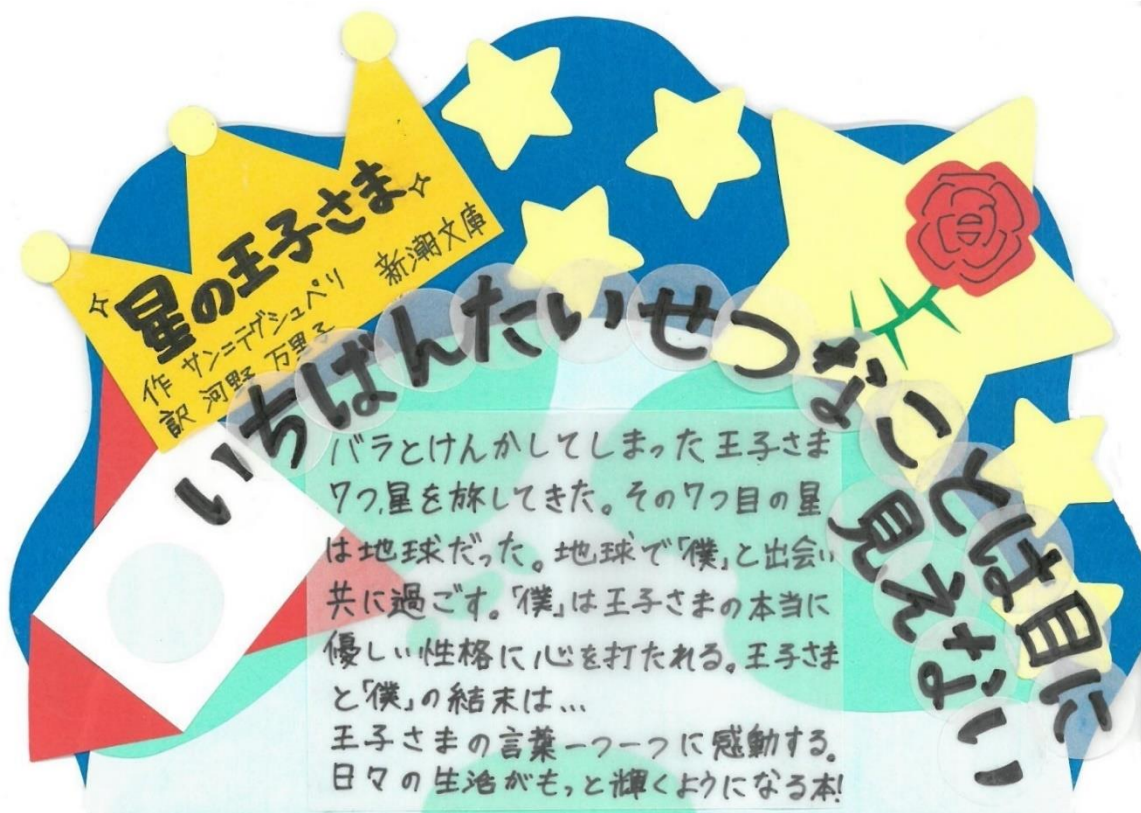 星の王子さま
作 サン=テグジュペリ 新潮文庫
訳 河野 万里子
いちばんたいせつなことは目に
見えない
バラとけんかしてしまった王子さま
7つ星を旅してきた。その7つ目の星
は地球だった。地球で「僕」と出会い
共に過ごす。「僕」は王子さまの本当に
優しい性格に心を打たれる。王子さま
と「僕」の結末は…
王子さまの言葉一つ一つに感動する。
日々の生活がもっと輝くようになる本!